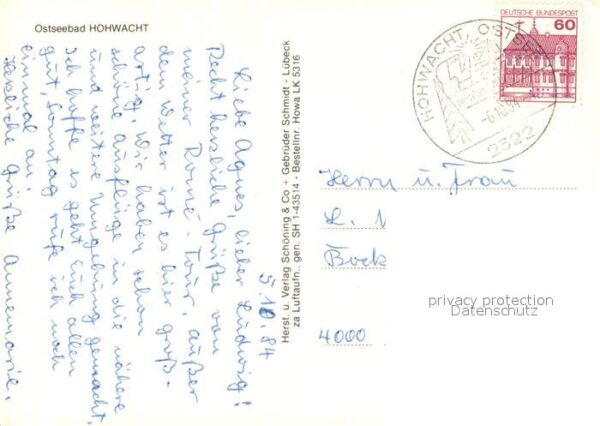 Ostseebad HOHWACHT
5.10.84
Liebe Agnes, lieber Ludwig!
Recht herzliche Grüße von
meiner Romé-Tour. Außer
dem Wetter ist es hier groß-
artig. Wir haben schon
schöne Ausflüge in die nähere
und weitere Umgebung gemacht.
Ich hoffe es geht Euch allen
gut, Sonntag rufe ich noch
einmal an.
Herzliche Grüße Annemarie.
Herst. u. Verlag Schöning & Co + Gebrüder Schmidt - Lübeck
za Luftaufn., gen. SH 1-43514 - Bestellnr. Howa LK 5316
HOHWACHT, OSTSEE
2322
DEUTSCHE BUNDESPOST
60
Herrn u. Frau
L.
Bock
4000
privacy protection
Datenschutz